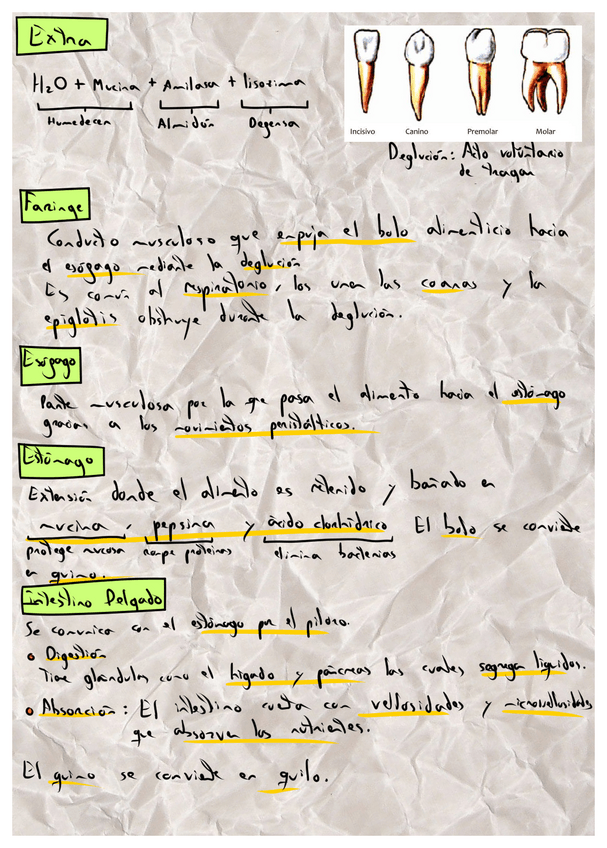 Extra
H₂O + Mucina + Amilasa + lisozima
Humedecen Almidón Defensa
Incisivo Canino Premolar Molar
Deglución: Acto voluntario
de tragar
Faringe
Conducto musculoso que empuja el bolo alimenticio hacia
el esófago mediante la deglución
Es común al respiratorio, los unen las coanas y la
epiglotis obstruye durante la deglución.
Esófago
Parte musculosa por la que pasa el alimento hacia el estómago
gracias a los movimientos peristálticos.
Estómago
Extensión donde el alimento es retenido y bañado en
mucina, pepsina y ácido clorhídrico El bolo se convierte
protege mucosa rompe proteínas elimina bacterias
en quimo.
Intestino Delgado
Se comunica con el estómago por el píloro.
• Digestión
Tiene glándulas como el hígado y páncreas las cuales segregan líquidos.
• Absorción: El intestino cuenta con vellosidades y microvellosidades
que absorven los nutrientes.
El quimo se convierte en quilo.